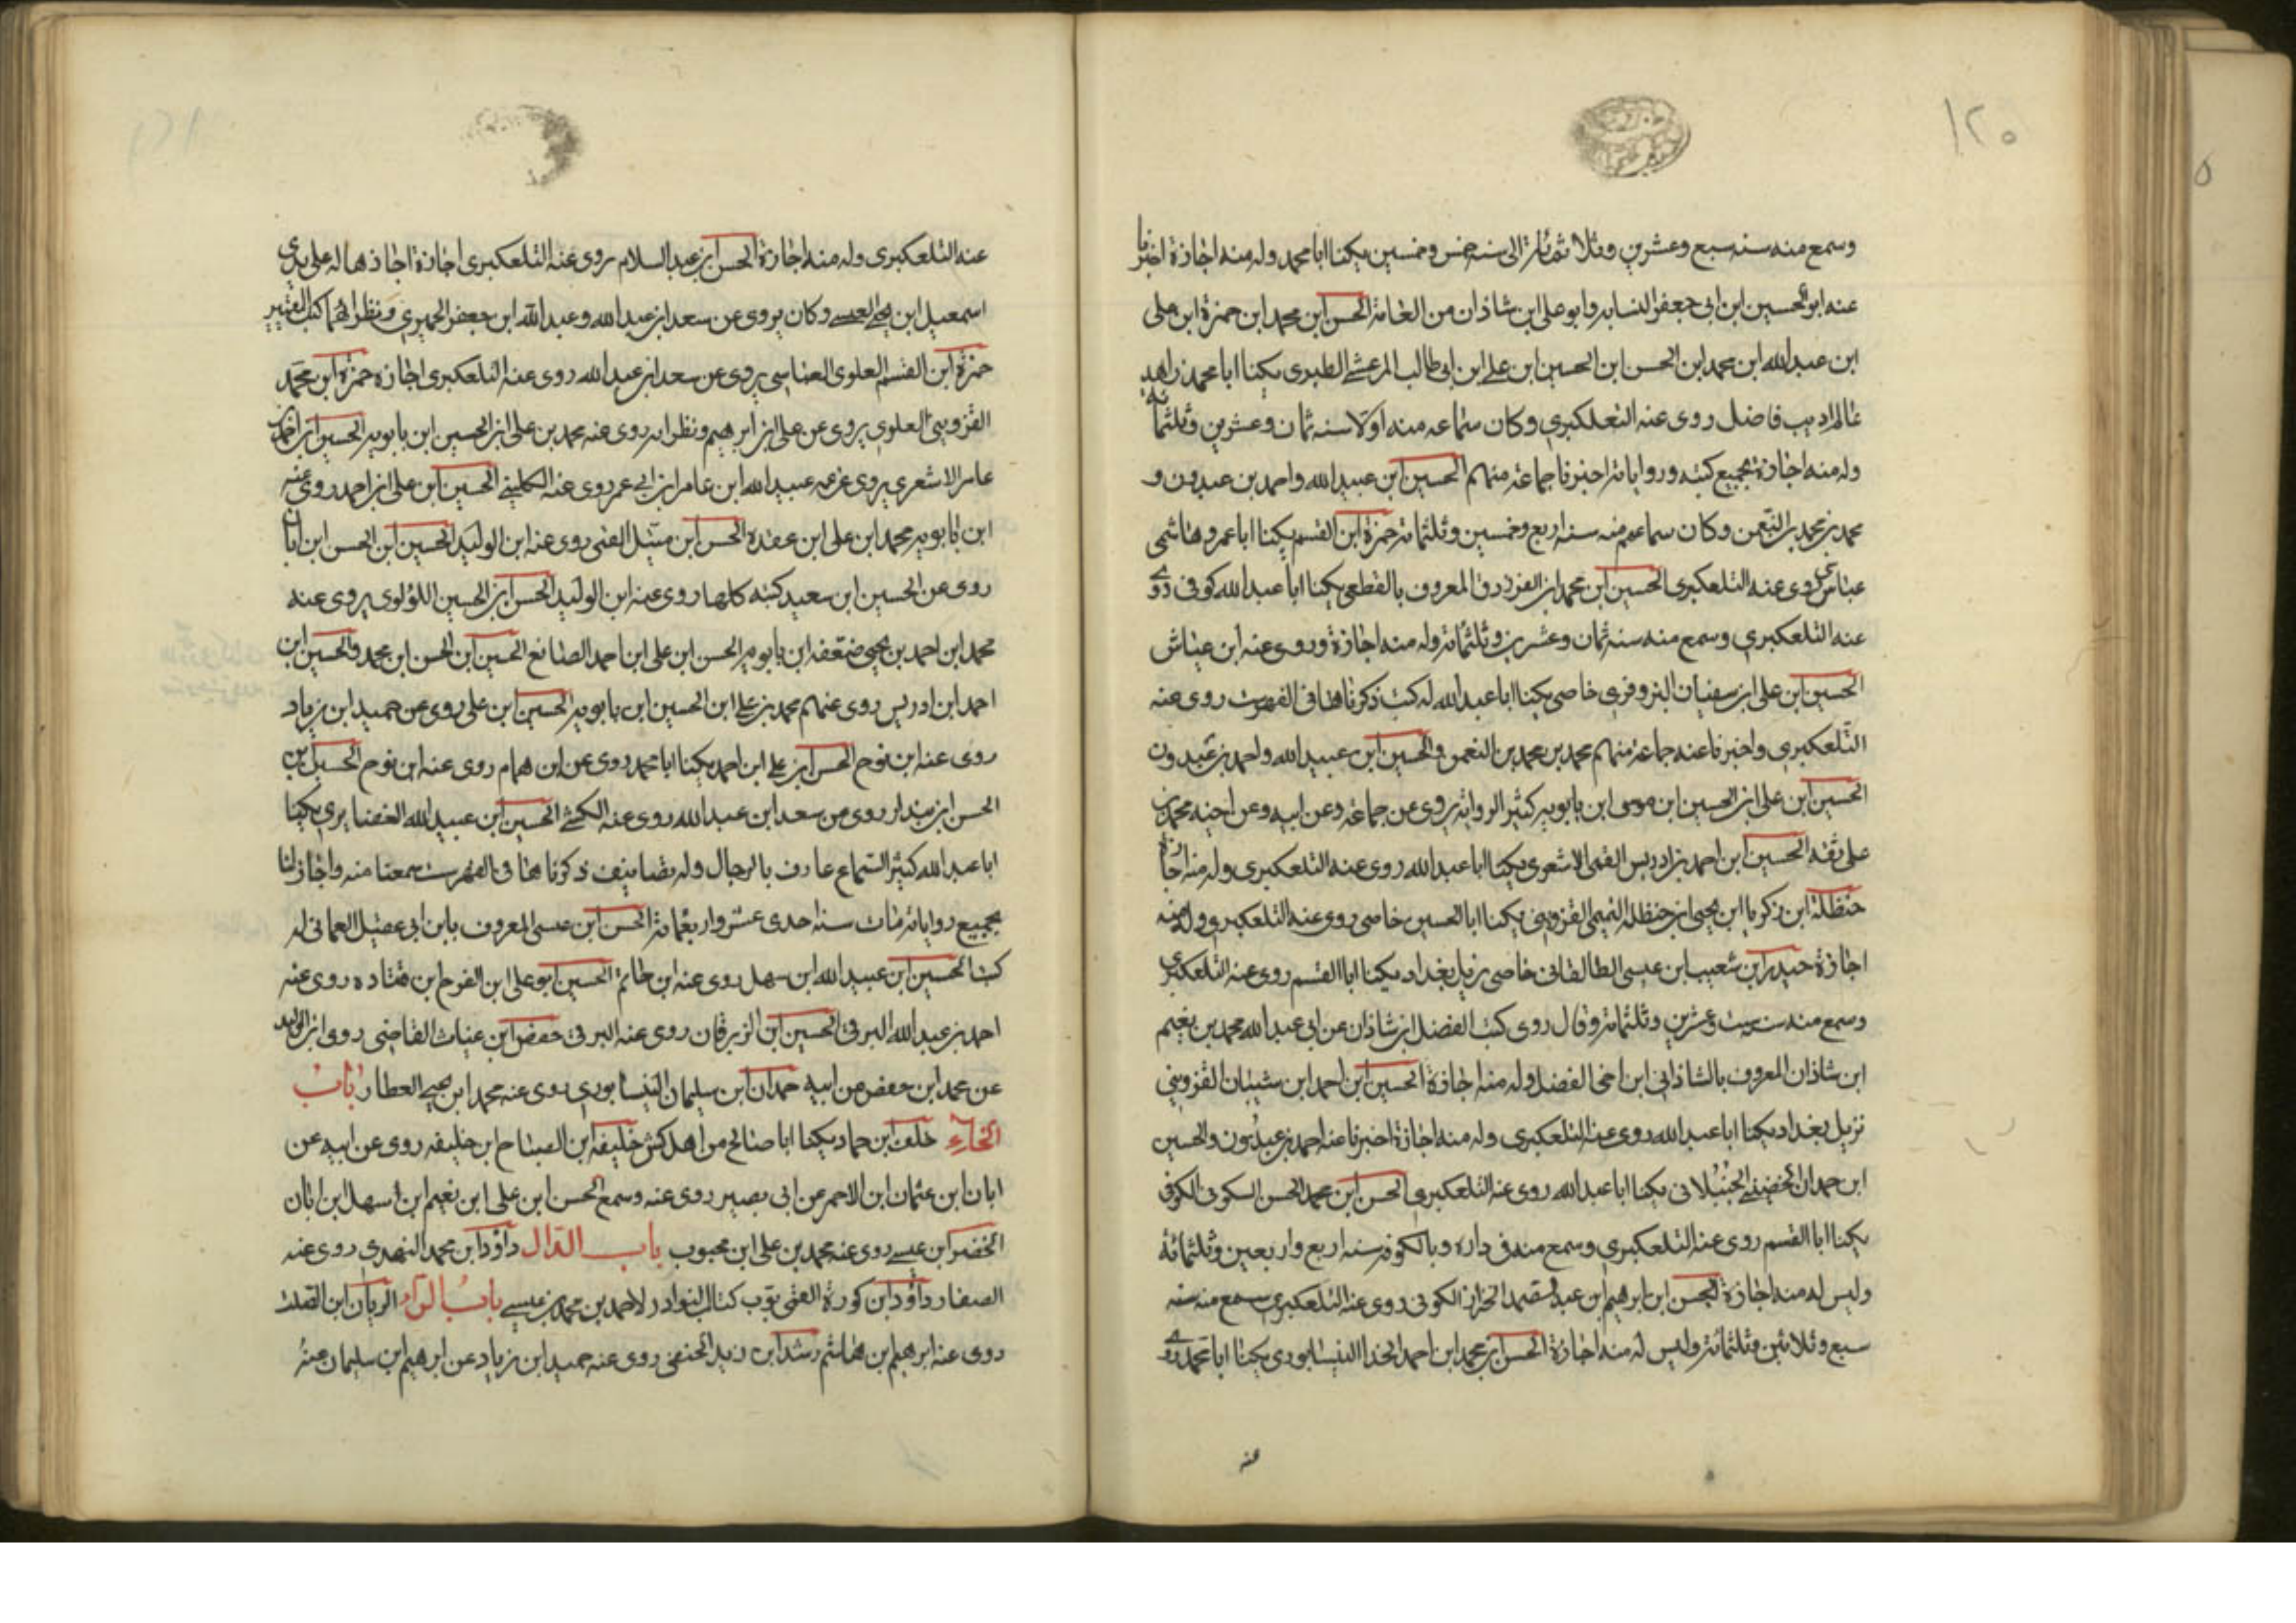 ١٢٠
وسمع منه سنه سبع وعشرين وثلاثمائة الى سنه خمس وخمسين يكنا ابا محمد وله منه اجازة اخبرنا
عنه ابو الحسين ابن ابى جعفر النسابه وابو على ابن شاذان من العامة الحسن ابن محمد ابن حمزة ابن على
ابن عبدالله ابن محمد ابن الحسن ابن الحسين ابن على ابن ابى طالب المرعشى الطبرى يكنا ابا محمد زاهد
عالم اديب فاضل روى عنه التعلكبرى وكان سماعه منه اولا سنه ثمان وعشرين وثلثمائه
وله منه اجازة بجميع كتبه ورواياته اخبرنا جماعة منهم الحسين ابن عبيد الله واحمد بن عبدون و
محمد بن محمد بن النعمن وكان سماعهم منه سنه اربع وخمسين وثلثمائة حمزة ابن القسم يكنا ابا عمرو هاشمى
عباسى روى عنه التلعكبرى الحسين ابن محمد ابن الفرزدق المعروف بالقطعى يكنا ابا عبد الله كوفى روى
عنه التلعكبرى وسمع منه سنه ثمان وعشرين وثلثمائة وله منه اجازة وروى عنه ابن عياش
الحسين ابن على ابن سفيان البزوفرى خاصى يكنا ابا عبد الله له كتب ذكرناها فى الفهرست روى عنه
التلعكبرى واخبرنا عنه جماعة منهم محمد بن محمد بن النعمن والحسين ابن عبيد الله واحمد بن عبدون
الحسين ابن على ابن الحسين ابن موسى ابن بابويه كثير الروايه يروى عن جماعة وعن ابيه وعن اخيه محمد بن
على ثقه الحسين ابن احمد بن ادريس القمى الاشعرى يكنا ابا عبد الله روى عنه التلعكبرى وله منه اجازة
حنظلة ابن زكريا ابن يحيى ابن حنظلة التميمى القزوينى يكنا ابا الحسين خاصى روى عنه التلعكبرى وله منه
اجازة حيدر ابن شعيب ابن عيسى الطالقانى خاصى نزيل بغداد يكنا ابا القسم روى عنه التلعكبرى
وسمع منه سنه ست وعشرين وثلثمائة وقال روى كتب الفضل ابن شاذان عن ابى عبد الله محمد بن نعيم
ابن شاذان المعروف بالشاذانى ابن اخى الفضل وله منه اجازة الحسين ابن احمد ابن شيبان القزوينى
نزيل بغداد يكنا ابا عبد الله روى عنه التلعكبرى وله منه اجازة اخبرنا عنه احمد بن عبدون والحسين
ابن حمدان الخضينى الجنبلانى يكنا ابا عبد الله روى عنه التلعكبرى الحسن ابن محمد الحسن السكونى الكوفى
يكنا ابا القسم روى عنه التلعكبرى وسمع منه فى داره وبالكوفه سنه اربع واربعين وثلثمائة
وليس له منه اجازة الحسن ابن ابرهيم ابن عبد الصمد الخزاز الكوفى روى عنه التلعكبرى سمع منه سنه
سبع وثلاثين وثلثمائة وليس له منه اجازة الحسن ابن محمد ابن احمد الحذا النيسابورى يكنا ابا محمد روى
عنه
عنه التلعكبرى وله منه اجازة الحسن ابن عبد السلام روى عنه التلعكبرى اجازة اجازها له على يدى
اسمعيل ابن يحيى العبسى وكان يروى عن سعد ابن عبد الله وعبد الله ابن جعفر الحميرى ونظرائهما
حمزة ابن القسم العلوى العباسى يروى عن سعد ابن عبد الله روى عنه التلعكبرى اجازه حمزة ابن محمد
القزوينى العلوى يروى عن على ابن ابرهيم ونظرائه روى عنه محمد بن على ابن الحسين ابن بابويه الحسين ابن احمد بن
عامر الاشعرى يروى عن عمه عبيد الله ابن عامر ابن ابى عمر روى عنه الكلينى الحسين ابن على ابن احمد روى عنه
ابن بابويه محمد ابن على ابن عقدة الحسن ابن متيل القمى روى عنه ابن الوليد الحسين ابن الحسن ابن ابان
روى عن الحسين ابن سعيد كتبه كلها روى عنه ابن الوليد الحسن ابن الحسين اللؤلوى يروى عنه
محمد ابن احمد بن يحيى ضعفه ابن بابويه الحسن ابن على ابن احمد الصائغ الحسين ابن الحسن ابن محمد والحسين ابن
احمد ابن ادريس روى عنهم محمد بن على ابن الحسين ابن بابويه الحسين ابن على روى عن حميد ابن زياد
روى عنه ابن نوح الحسن ابن على ابن احمد يكنا ابا محمد روى عن ابن همام روى عنه ابن نوح الحسين بن
الحسن ابن بندار روى عن سعد ابن عبد الله روى عنه الكشى الحسين ابن عبيد الله الغضايرى يكنا
ابا عبد الله كثير السماع عارف بالرجال وله تصانيف ذكرناها فى الفهرست سمعنا منه واجاز لنا
بجميع رواياته مات سنه احدى عشر واربعمائة الحسن ابن عيسى المعروف بابن ابى عقيل العمانى له
كتب الحسين ابن عبيد الله ابن سهل روى عنه ابن حاتم الحسين ابو على ابن الفرج ابن قتاده روى عنه
احمد بن عبد الله البرقى الحسين ابن الزبرقان روى عنه البرقى حفص ابن غياث القاضى روى ابن الوليد
عن محمد ابن حفص عن ابيه حمدان ابن سليمان النيسابورى روى عنه محمد ابن يحيى العطار باب
الخاء خلف ابن حماد يكنا ابا صالح من اهل كش خليفه ابن الصباح ابن خليفه روى عن ابيه عن
ابان ابن عثمان ابن الاحمر عن ابى بصير روى عنه وسمع الحسن ابن على ابن نعيم ابن سهل ابن ابان
الخضر ابن عيسى روى عنه محمد بن على ابن محبوب باب الدال داود ابن محمد النهدى روى عنه
الصفار داود ابن كورة القمى بوب كتاب النوادر لاحمد بن محمد بن عيسى باب الراء الريان ابن الصلت
روى عنه ابرهيم ابن هاشم رشد ابن زيد الجعفى روى عنه حميد ابن زياد عن ابرهيم ابن سليمان عنه